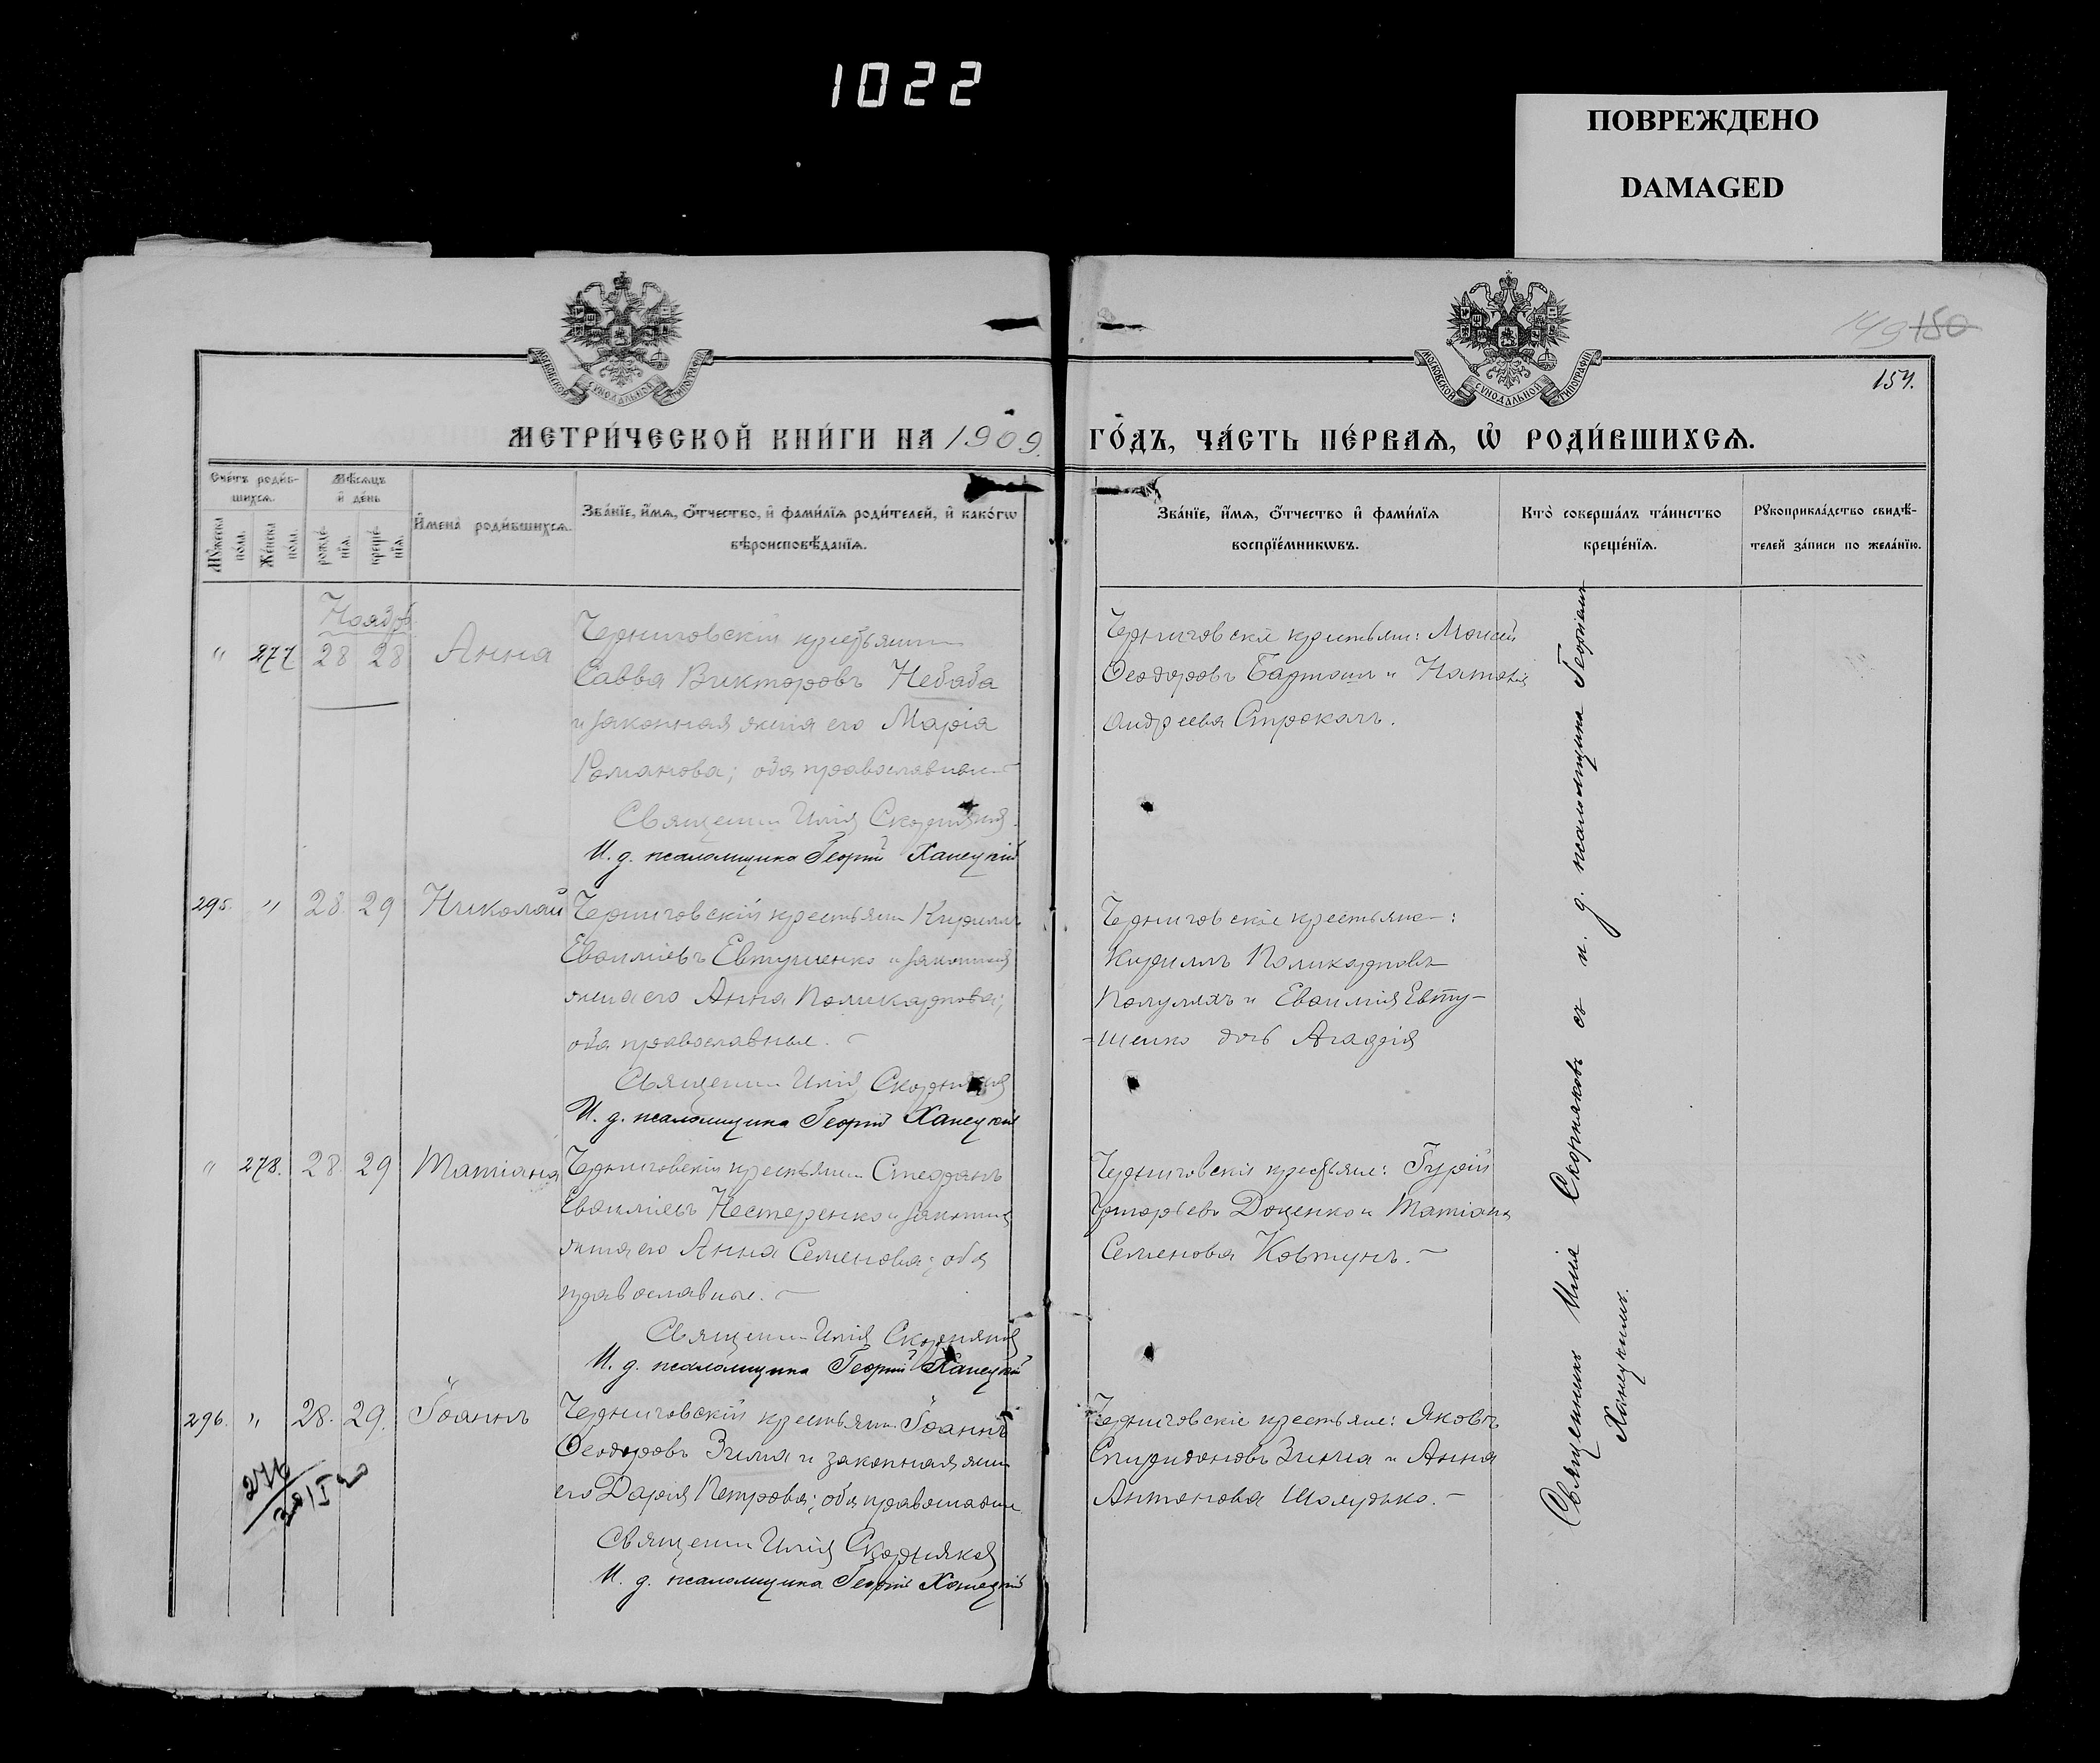 1022
ПОВРЕЖДЕНО
DAMAGED
149 150
154.
МОСКОВСКОЙ СѴНОДАЛЬНОЙ ТИПОГРАФІИ
МОСКОВСКОЙ СѴНОДАЛЬНОЙ ТИПОГРАФІИ
МЕТРИ́ЧЕСКОЙ КНИ́ГИ НА 1909 ГО́ДЪ, ЧА́СТЬ ПЕ́РВАѦ, Ѡ҆ РОДИ́ВШИХСѦ.
Сче́тъ роди́в-
шихсѧ.
Мꙋ́жеска по́ла.
Же́нска пола.
Мѣ́сѧцъ
и҆ де́нь
рожде́-
нїѧ.
креще́-
нїѧ.
И҆мена̀ роди́вшихсѧ.
Зва́нїе, и҆́мѧ, ѻ҆́тчество, и҆ фами́лїѧ роди́телей, и҆ како́гѡ
вѣроисповѣ́данїѧ.
Зва́нїе, и҆́мѧ, ѻ҆́тчество и҆ фами́лїѧ
воспрїе́мникѡвъ.
Кто̀ соверша́лъ та́инство
креще́нїѧ.
Рꙋкоприкла́дство свидѣ́-
телей за́писи по жела́нїю.
Ноябр.
" 277 28 28 Анна
Черниговскій крестьянин
Савва Викторовъ Небаба
и законная жена его Марія
Романова; оба православные
Священ. Илія Скорняков
И. д. псаломщика Георгій Ханецкій
Черниговскіе крестьяне: Моисей
Ѳеодоровъ и Наталія
Андреева Строкачъ.
295. " 28 29 Николай
Черниговскій крестьянин Кириллъ
Евѳиміевъ Евтушенко и законная
жена его Анна Поликарпова;
оба православные.
Священ. Илія Скорняков
И. д. псаломщика Георгій Ханецкій
Черниговскіе крестьяне:
Кириллъ Поликарповъ
Полуляхъ и Евѳимія Евту-
шенко дочь Агафія
" 278. 28. 29 Татіана
Черниговскій крестьянин Стефанъ
Евѳиміевъ Нестеренко и законная
жена его Анна Семенова; оба
православные.
Священ. Илія Скорняков
И. д. псаломщика Георгій Ханецкій
Черниговскіе крестьяне: Гурій
Григорьевъ Доценко и Татіана
Семенова Ковтунъ.
296. " 28. 29. Іоаннъ
Черниговскій крестьянин Іоаннъ
Ѳеодоровъ Зима и законная жена
его Дарія Петрова; оба православные
Священ. Илія Скорняков
И. д. псаломщика Георгій Ханецкій
Черниговскіе крестьяне: Яковъ
Спиридоновъ Зима и Анна
Антонова Шолудько.
276
Священникъ Илія Скорняковъ съ и. д. псаломщика Георгіемъ
Ханецкимъ.